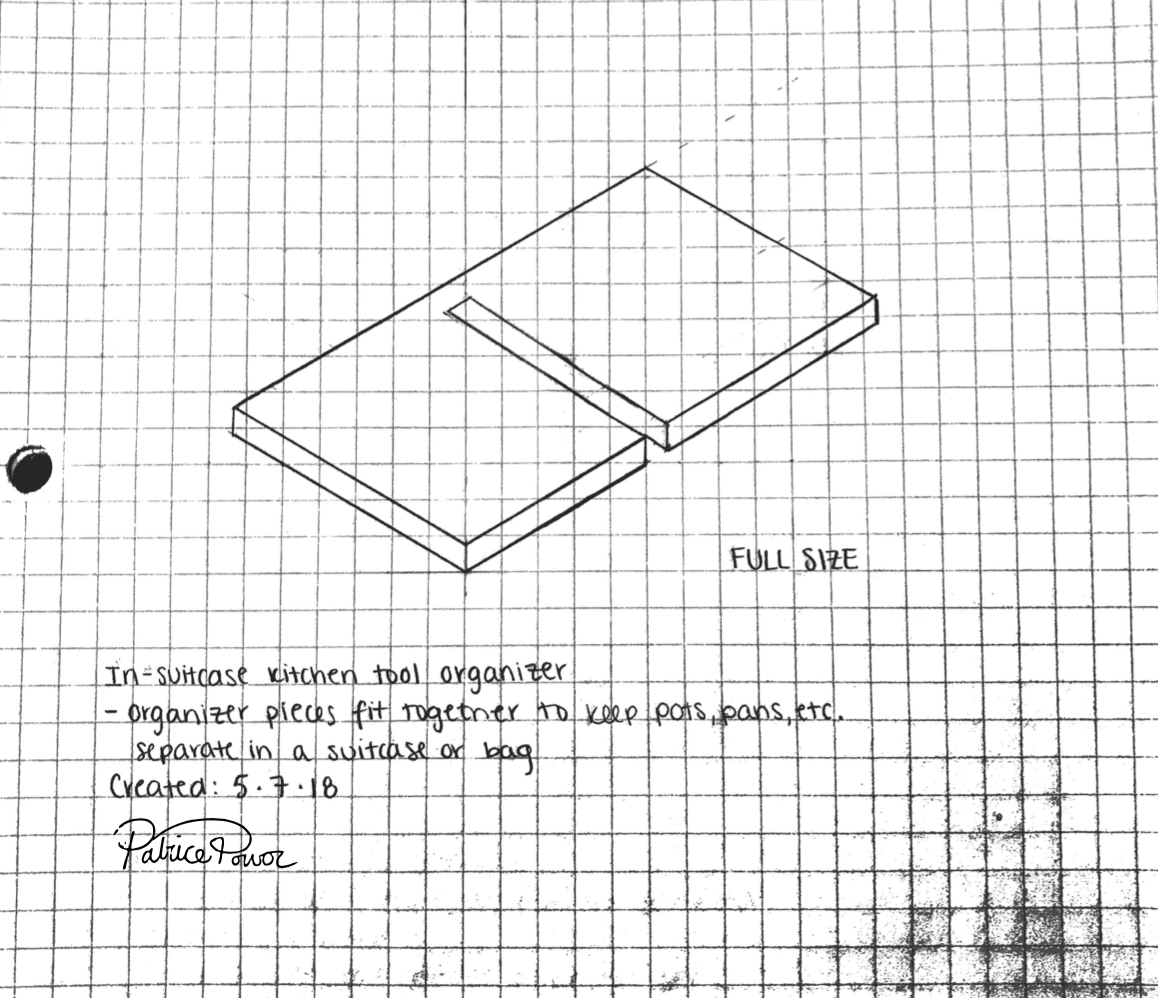 FULL SIZE
In-suitcase kitchen tool organizer
- organizer pieces fit together to keep pots, pans, etc.
separate in a suitcase or bag
Created: 5.7.18
Patrice Power